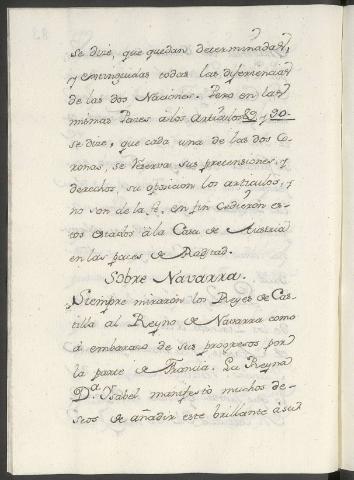 se dize, que quedan determinadas,
y extinguidas todas las diferencias
de las dos Naciones. Pero en las
mismas Pazes a los Articulos 89 y 90.
se dize, que cada una de las dos Co-
ronas, se reserva sus pretensiones, y
derechos, su oposicion los articulos, y
no son de la fe, en fin cedieron es-
tos estados â la Casa de Austria
en las pazes de Rastad.
Sobre Navarra.
Siempre miraron los Reyes de Cas-
tilla al Reyno de Navarra como
â embarazo de sus progresos por
la parte de Francia. La Reyna
D.ª Ysabel manifesto muchos de-
seos de añadir este brillante â su